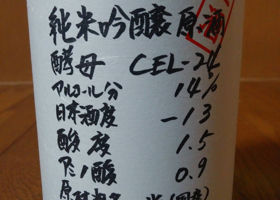 純米吟醸原酒
酵母 CEL-24
アルコール分 14%
日本酒度 -13
酸度 1.5
アミノ酸 0.9
原材料 米(国産)